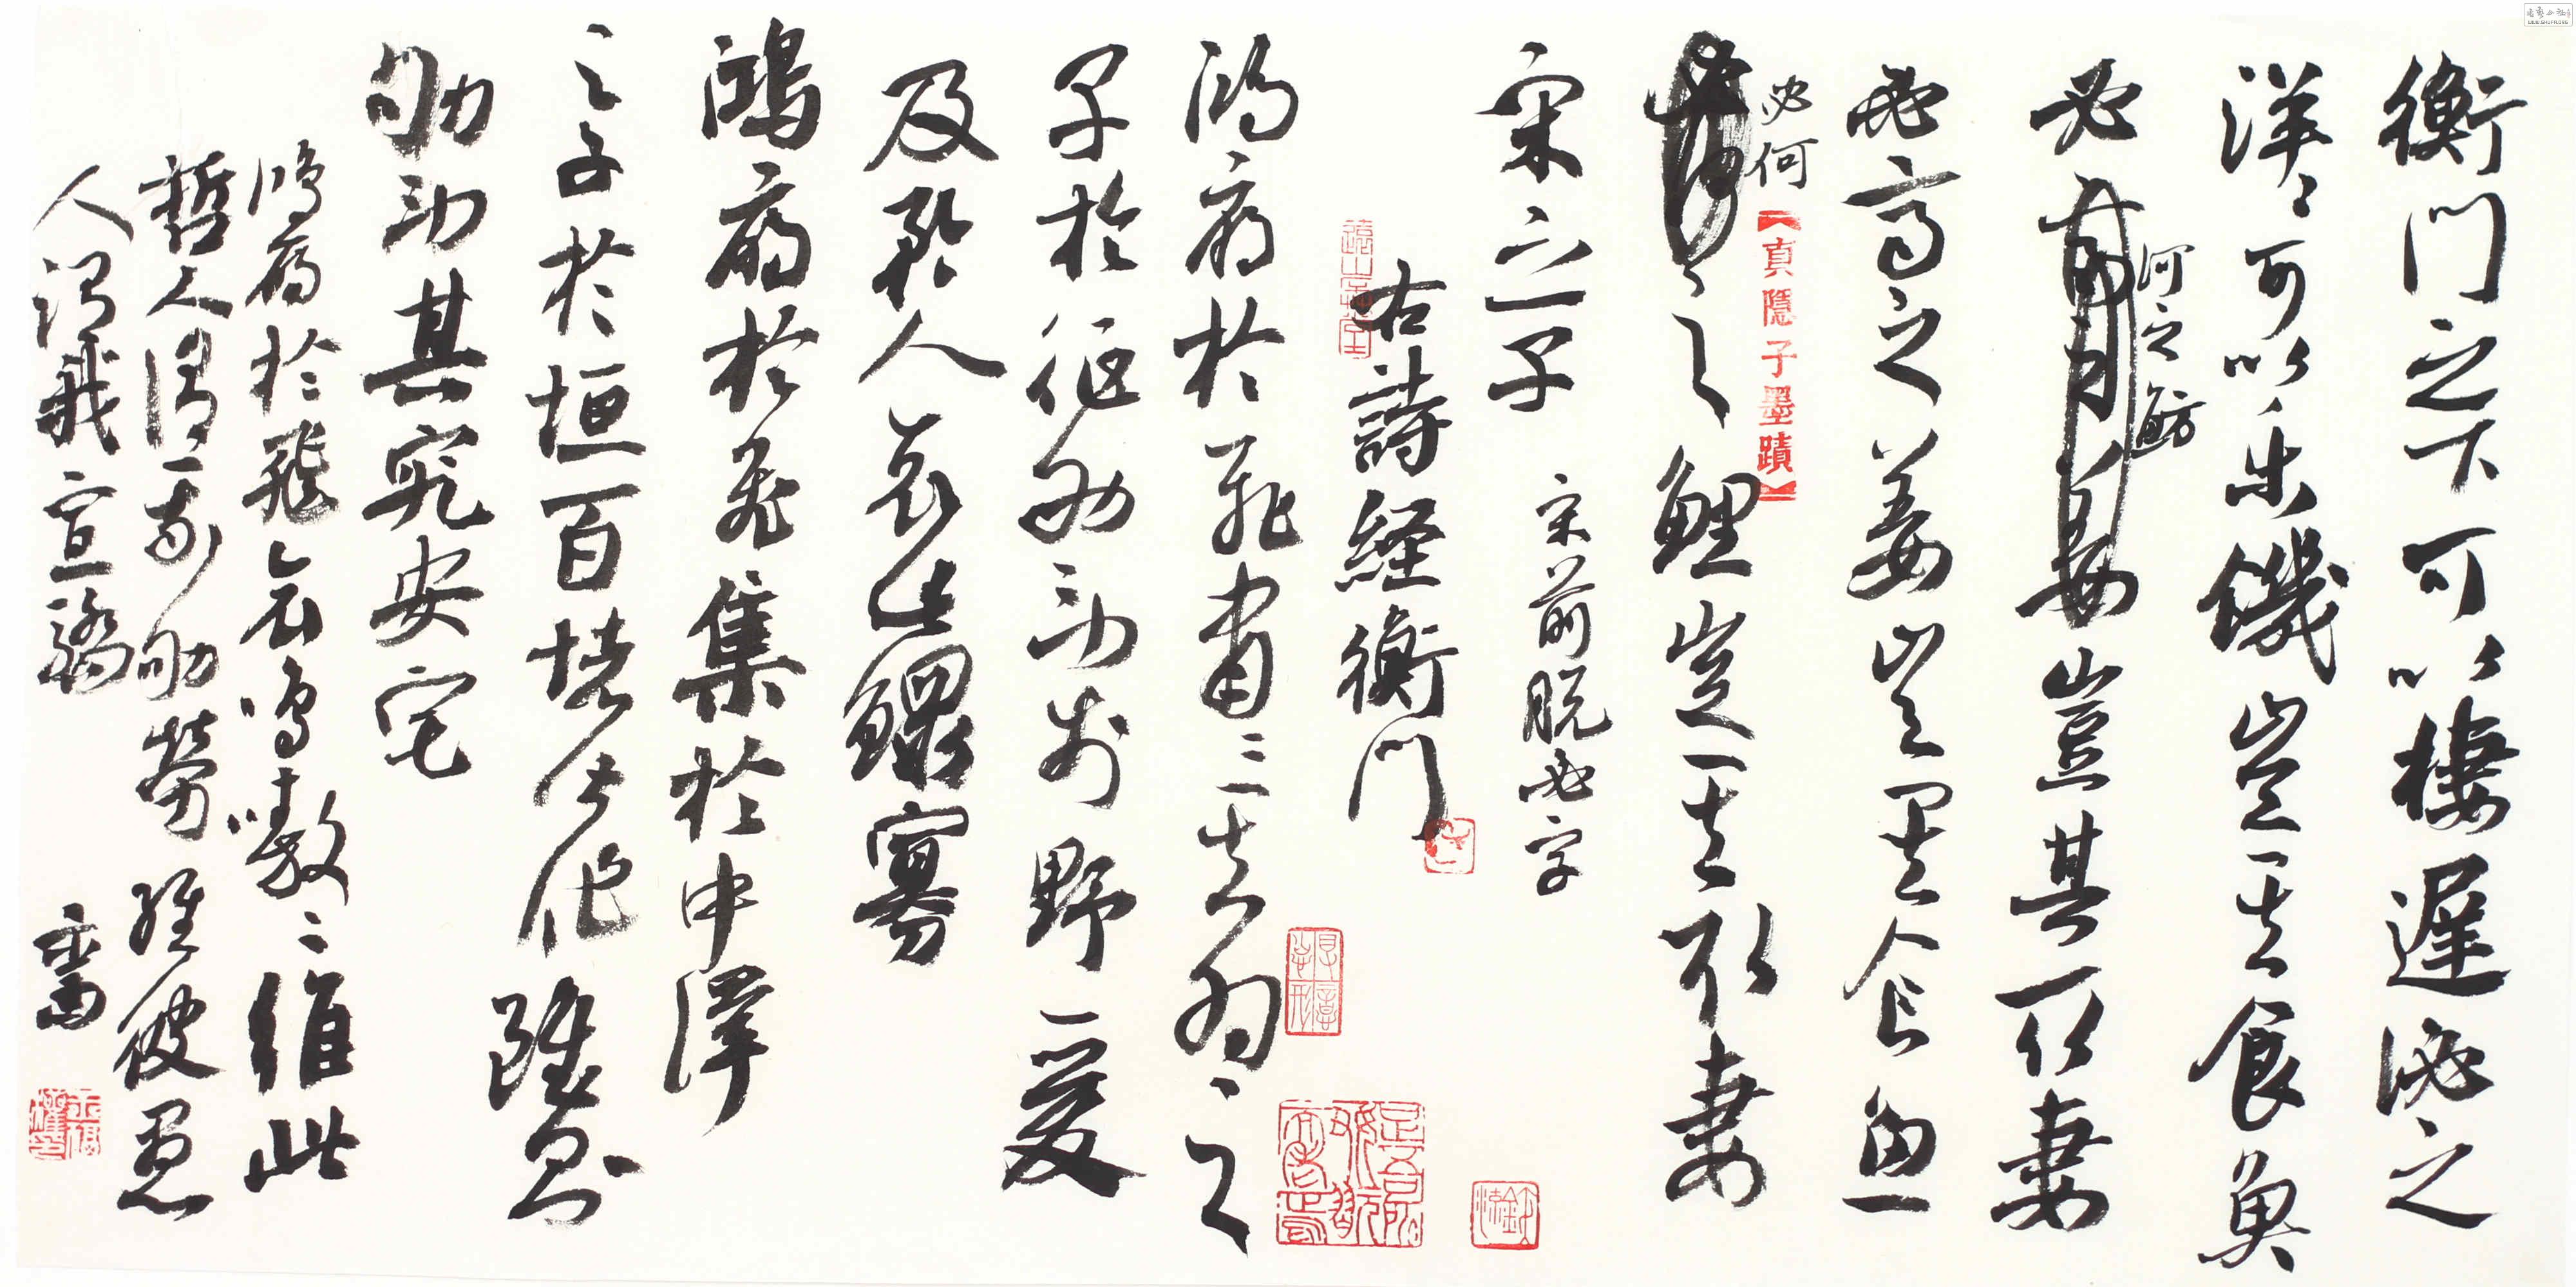 衡門之下可以棲遲泌之
洋〻可以乐饑豈其食魚
必
何之魴
姜豈其可以妻
必
之姜豈其食魚
必何
之鯉豈其取妻
宋之子
宋前脱必字
右詩經衡門
鸿雁於飛肅〻其羽之
子於征劬勞於野爰
及矜人哀此鰥寡
鴻雁於飛集於中澤
之子於垣百堵皆作雖則
劬勞其究安宅
鴻雁於飛哀鳴嗷〻維此
哲人謂我劬勞維彼愚
人謂我宣驕
【真隱子墨蹟】
WWW.SHUFR.ORG